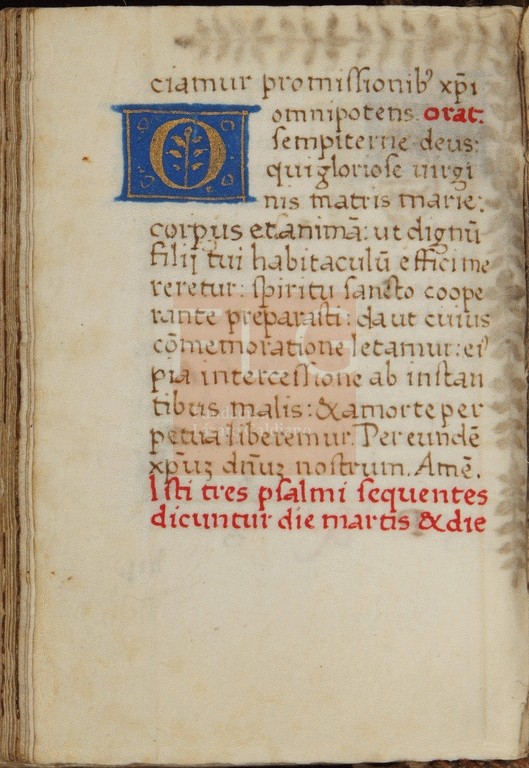 ciamur promissionib᷒ xp̄i
O omnipotens. orat:
sempiterne deus:
qui gloriose uirgi
nis matris marie:
corpus et animā: ut dignū
filij tui habitaculū effici me
reretur: spiritu sancto coope
rante preparasti: da ut cuius
cōmemoratione letamur: ei᷒
pia intercessione ab instan
tibus malis: & a morte per
petua liberemur. Per eundē
xp̄uꝫ dn̄uꝫ nostrum. Amē.
Isti tres psalmi sequentes
dicuntur die martis & die